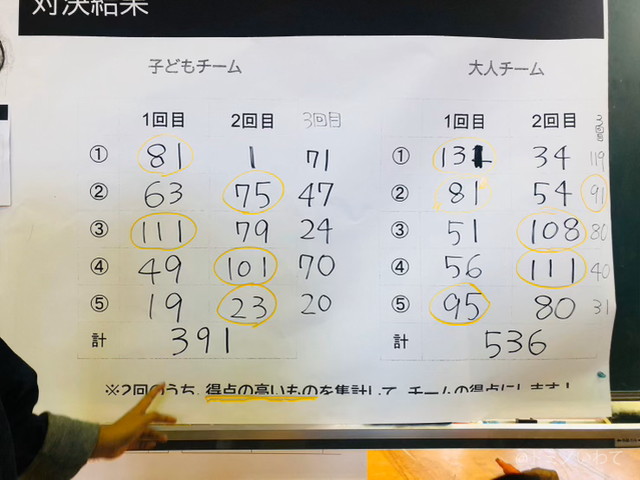 対決結果
子どもチーム 大人チーム
1回目 2回目 3回目 1回目 2回目 3回目
① 81 1 71 ① 131 34 119
② 63 75 47 ② 81 54 91
③ 111 79 24 ③ 51 108 80
④ 49 101 70 ④ 56 111 40
⑤ 19 23 20 ⑤ 95 80 31
計 391 計 536
※2回のうち、得点の高いものを集計して、チームの得点にします！